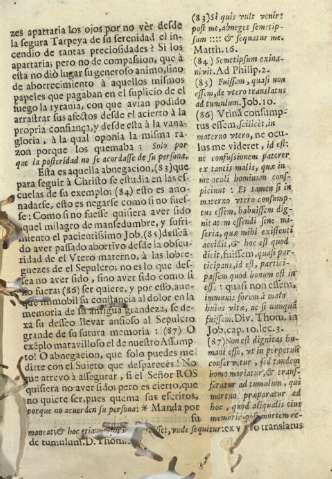 zes apartaria los ojos por no vèr desde
la segura Tarpeya de su serenidad el in-
cendio de tantas preciosidades? Si los
apartaria; pero no de compasion, que à
esta no diò lugar su generoso animo, sino
de aborrecimiento à aquellos mismos
papeles que pagaban en el suplicio de el
fuego la tyrania, con que avian podido
arrastrar sus afectos desde el acierto à la
propria confiança, y desde està à la vana-
gloria, à la qual oponia la misma ra-
zon porque los quemaba: Solo por
que la posteridad no se acordasse de su persona.
Esta es aquella abnegacion, (83) que
para seguir à Christo se estudia en las es-
cuelas de su exemplo. (84) esto es ano-
nadarse, esto es negarse como si no fues-
se: Como si no fuesse quisiera aver sido
aquel milagro de mansedumbre, y sufri-
miento el pacientissimo Job, (85) desseó
no aver passado abortivo desde la obscu-
ridad de el Vtero materno, à las lobre-
guezes de el Sepulcro; no es lo que des-
no aver sido, sino aver sido como si
no fuera: (86) se quiere, y por esso,
immobil su constancia al dolor en la
memoria de su antigua grandeza, se de-
xa su desseo llevar ansioso al Sepulcro
grande de su futura memoria: (87) O
exẽplo maravilloso el de nuestro Assump-
to! O abnegacion, que solo puedes me-
dirte con el Sugeto que desparece! No
me atrevo à assegurar, si el Señor ROS
quisiera no aver sido; pero es cierto, que
no quiere ser, pues quema sus escritos,
porque no acuerden su persona: * Manda por
(83) Si quis vult venire
post me, abneget semetip-
sum :::: & sequatur me.
Matth. 16.
(84) Semetipsum exina-
nivit. Ad Philip. 2.
(85) Fuissem, quasi non
essem, de vtero translatus
ad tumulum. Job. 10.
(86) Vtinã consumptus
essem, scilicet, in
materno vtero, ne ocu-
lus me videret, id est:
ne confusionem paterer
ex tantis malis, qua in
me oculi hominum cons-
piciunt: Et tamen si in
materno vtero consump-
tus essem, babuissem dig-
nitatem essendi sine mi-
seria, qua mihi existenti
accidit, & hoc est quod
dicit, fuissem, quasi par-
ticipans, id est, partici-
passem quod bonum est in
esse: quasi non essem,
immunis forem à malis
huius vite, ac si nunquam
fuissem. Div. Thom. in
Job, cap. 10. lec. 3.
(87) Non est dignitas hu-
mani esse, vt in perpetuum
conservetur, sed tandem
homo moriatur, & trans-
feratur ad tumulum, qui
mortuis praparatur ad
hoc, quod aliqualis eius
memoria post mortem re-
maneat; & hoc
sequitur: ex vtero translatus
de tumulum. D. Thom.